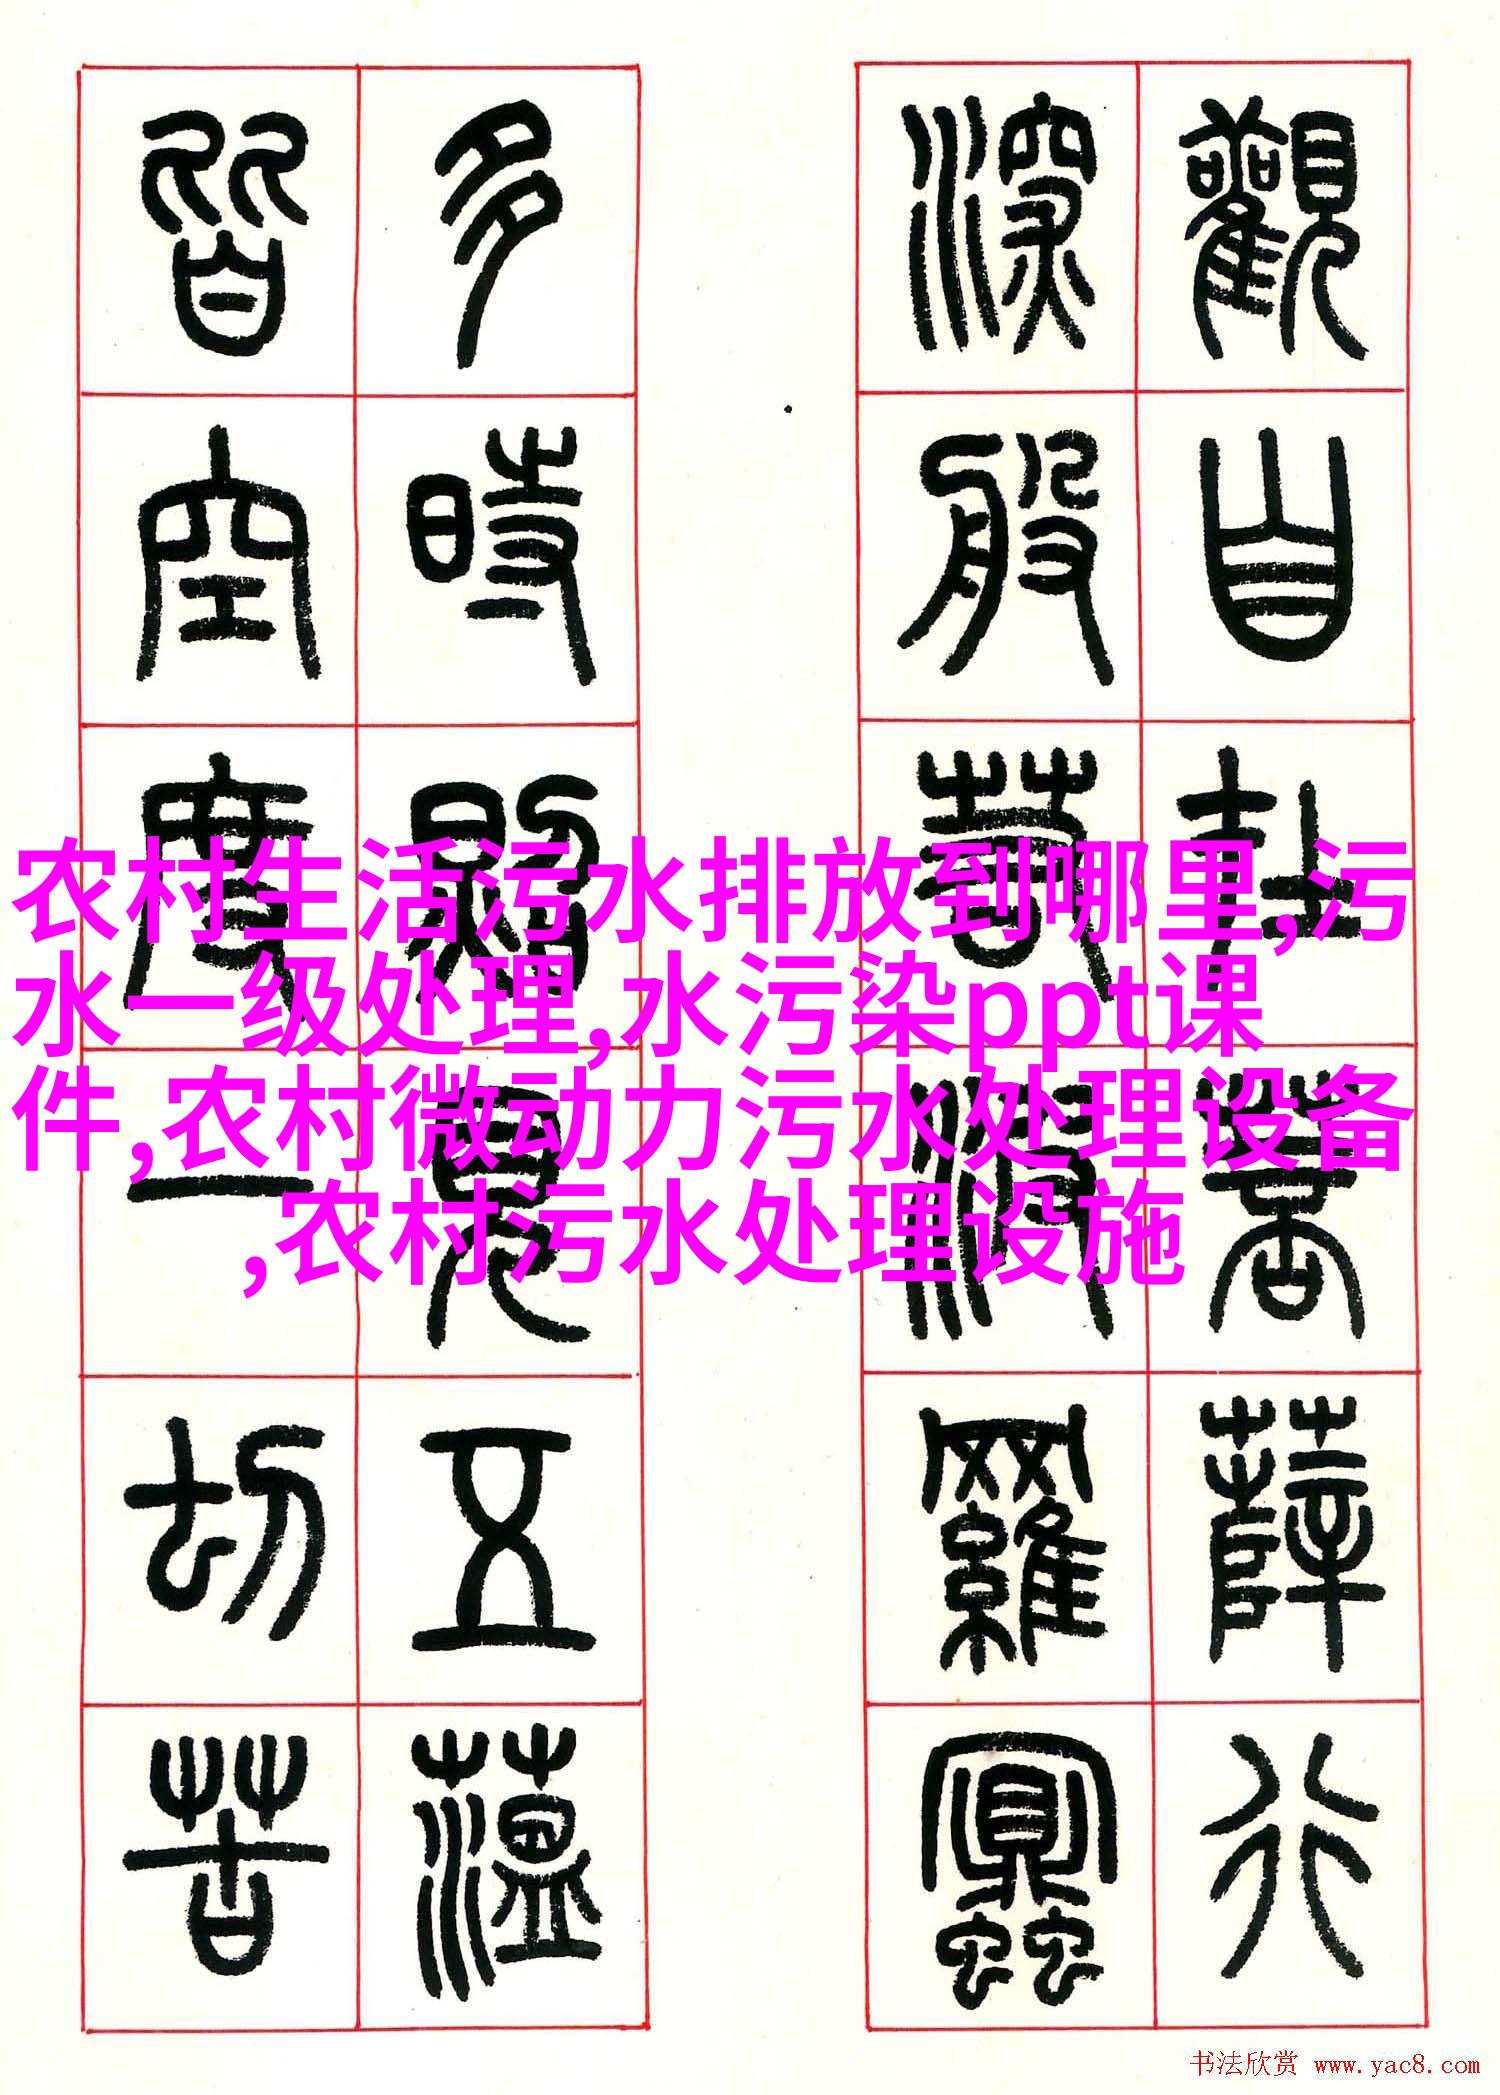 觀自在菩薩行
深般若波羅蜜
多時照見五蘊
皆空度一切苦
农村生活污水排放到哪里,污
水一级处理,水污染ppt课
件,农村微动力污水处理设备
,农村污水处理设施
书法欣赏 www.yac8.com